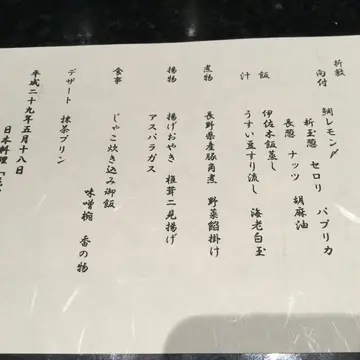 折敷
向付 鯛レモン〆
新玉葱 セロリ パプリカ
長葱 ナッツ 胡麻油
飯 伊佐木飯蒸し
汁 うすい豆すり流し 海老白玉
煮物 長野県産豚角煮 野菜餡掛け
揚物 揚げおやき 椎茸二見揚げ
アスパラガス
食事 じゃこ炊き込み御飯
味噌椀 香の物
デザート 抹茶プリン
平成二十九年五月十八日
日本料理